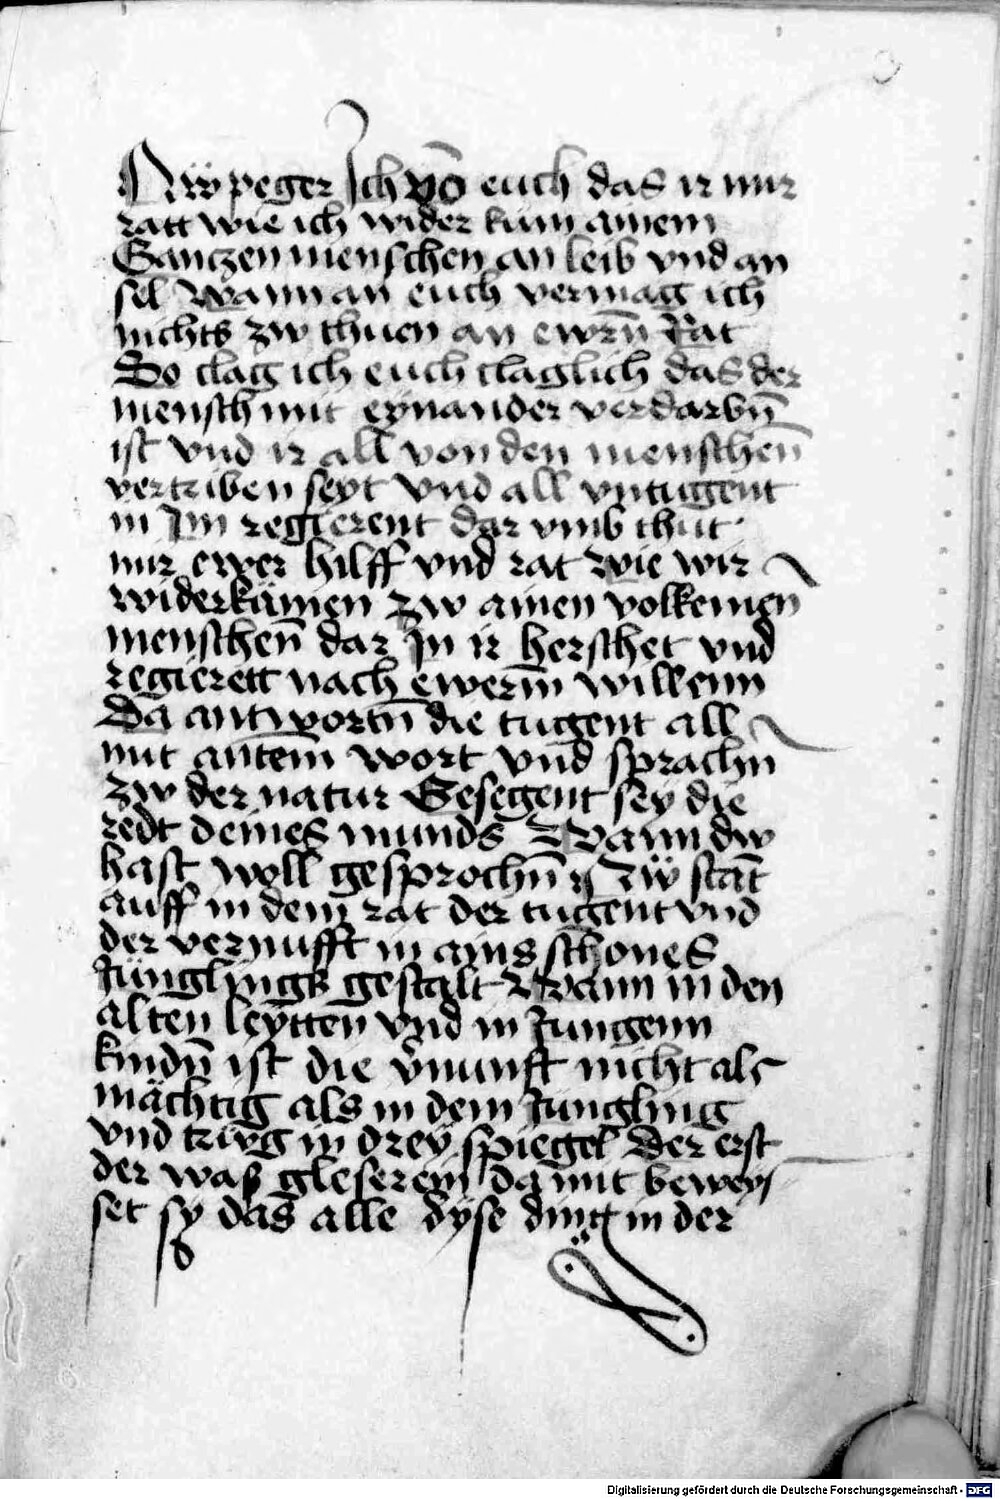 Nw̎ peger Ich vō euch das ir mir
ratt wie ich wider kum ainem
Gantzen menschen an leib vnd an
sel Wann an euch vermag ich
nichts zw thuen an ewrn̄ Rat
So clag ich euch claglich das der
mensch mit eynander verdarbn̄
ist vnd ir all von den menschen̄
vertriben seyt vnd all vntugent
in Im regierent dar vmb thut
mir ewer hilff vnd rat wie wir
widerkämen zw ainen volkemen̄
menschen̄ dar In ir herschet vnd
regierett nach ewerm̄ willenn
Da antwortn̄ die tugent all
mit antem̄ wort vnd sprachn̄
zw der natur Gesegent sey die
redt deines munds Wann dw
hast woll gesprochn̄ Zw̎ stāt
auff in dem rat der tugent vnd
der vernufft in ains schones
Jünglings gestalt Wann in den
alten leytten vnd in Jungenn
kindn̄ ist die v̄nunft nicht als
mächtig als in dem Jungling
vnd trüg in drey spiegel Der erst
der waß gleserein da mit bewey
set sy das alle dyse ding in der
Digitalisierung gefördert durch die Deutsche Forschungsgemeinschaft - DFG